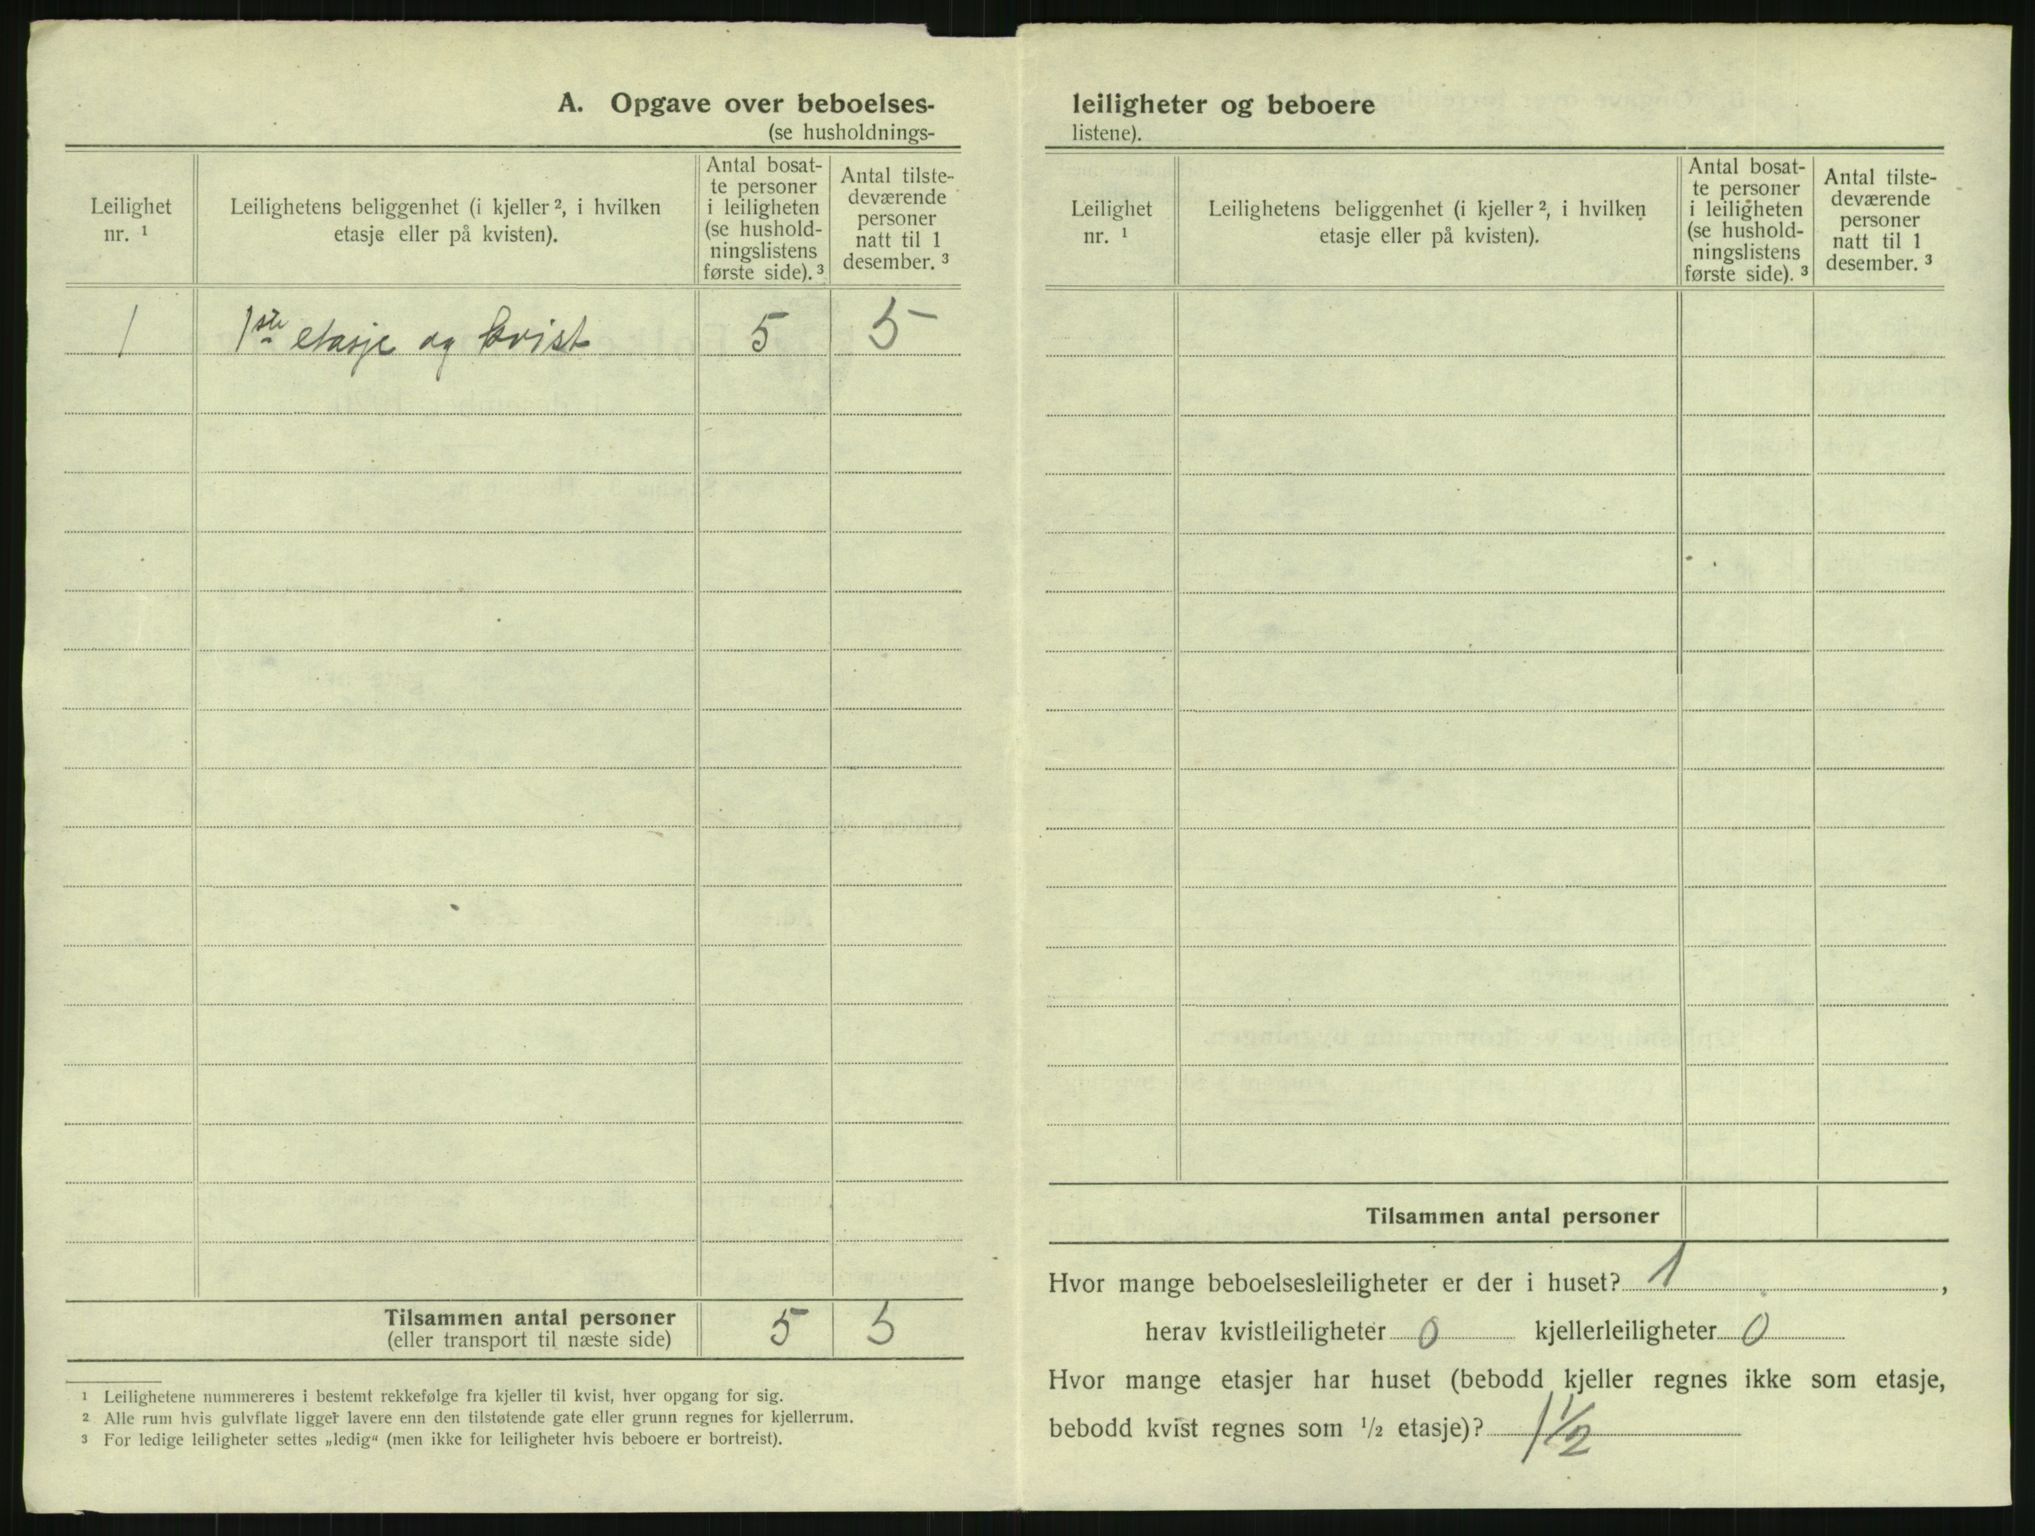 A. Opgave over beboelses-
(se husholdnings-
Leilighet
nr. ¹
Leilighetens beliggenhet (i kjeller ², i hvilken
etasje eller på kvisten).
Antal bosat-
te personer
i leiligheten
(se hushold-
ningslistens
første side). ³
Antal tilste-
deværende
personer
natt til 1
desember. ³
1 1ste etasje og kvist 5 5
Tilsammen antal personer 5 5
(eller transport til næste side)
¹ Leilighetene nummereres i bestemt rekkefølge fra kjeller til kvist, hver opgang for sig.
² Alle rum hvis gulvflate ligger lavere enn den tilstøtende gate eller grunn regnes for kjellerrum.
³ For ledige leiligheter settes „ledig“ (men ikke for leiligheter hvis beboere er bortreist).
leiligheter og beboere
listene).
Leilighet
nr. ¹
Leilighetens beliggenhet (i kjeller ², i hvilken
etasje eller på kvisten).
Antal bosat-
te personer
i leiligheten
(se hushold-
ningslistens
første side). ³
Antal tilste-
deværende
personer
natt til 1
desember. ³
Tilsammen antal personer
Hvor mange beboelsesleiligheter er der i huset? 1,
herav kvistleiligheter 0 kjellerleiligheter 0
Hvor mange etasjer har huset (bebodd kjeller regnes ikke som etasje,
bebodd kvist regnes som ½ etasje)? 1½